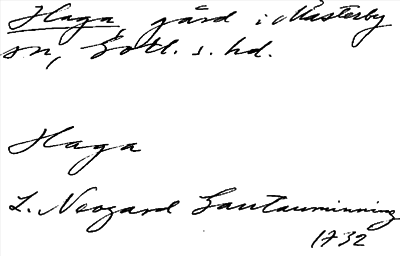 Haga, gård i Mästerby
sn, Gotl. s. hd.
Haga
L. Neogard Gautauminning
1732